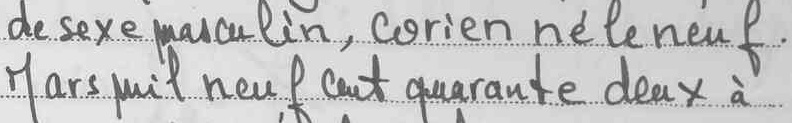 de sexe masculin, Corien né le neuf.
Mars mil neuf Cent quarante deux à